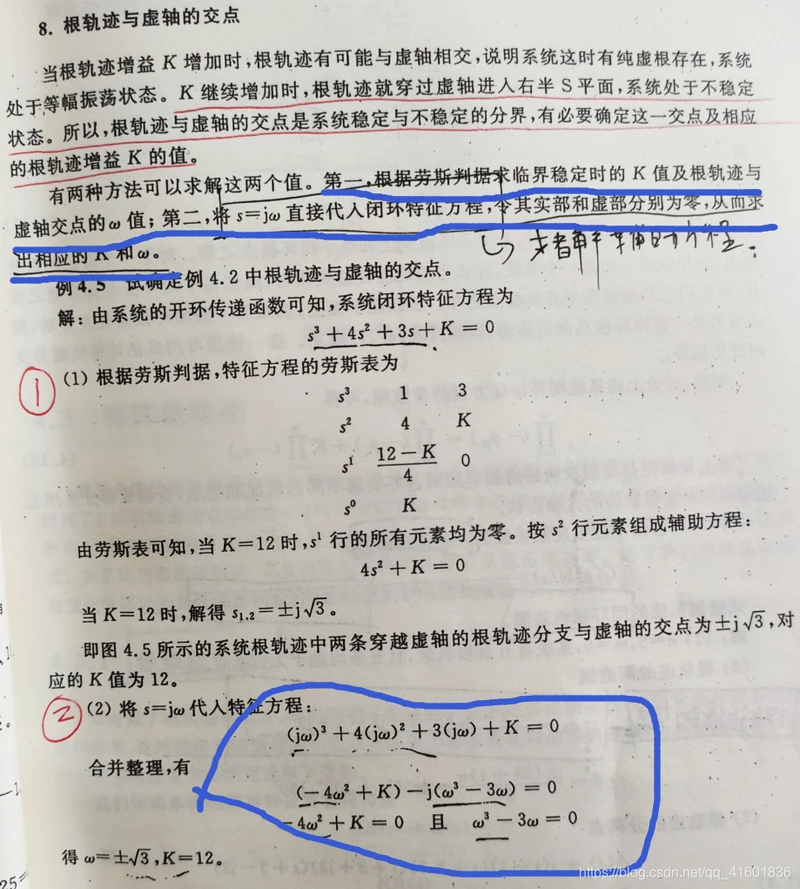 8. 根轨迹与虚轴的交点
当根轨迹增益 K 增加时,根轨迹有可能与虚轴相交,说明系统这时有纯虚根存在,系统
处于等幅振荡状态。K 继续增加时,根轨迹就穿过虚轴进入右半 S 平面,系统处于不稳定
状态。所以,根轨迹与虚轴的交点是系统稳定与不稳定的分界,有必要确定这一交点及相应
的根轨迹增益 K 的值。
有两种方法可以求解这两个值。第一,根据劳斯判据求临界稳定时的 K 值及根轨迹与
虚轴交点的 ω 值;第二,将 s=jω 直接代入闭环特征方程,令其实部和虚部分别为零,从而求
出相应的 K 和 ω。
例 4.5 试确定例 4.2 中根轨迹与虚轴的交点。
解:由系统的开环传递函数可知,系统闭环特征方程为
s³+4s²+3s+K=0
1
(1) 根据劳斯判据,特征方程的劳斯表为
s³ 1 3
s² 4 K
s¹ (12-K)/4 0
s⁰ K
由劳斯表可知,当 K=12 时,s¹ 行的所有元素均为零。按 s² 行元素组成辅助方程:
4s²+K=0
当 K=12 时,解得 s₁,₂=±j√3。
即图 4.5 所示的系统根轨迹中两条穿越虚轴的根轨迹分支与虚轴的交点为±j√3,对
应的 K 值为 12。
2
(2) 将 s=jω 代入特征方程:
(jω)³+4(jω)²+3(jω)+K=0
合并整理,有
(-4ω²+K)-j(ω³-3ω)=0
-4ω²+K=0 且 ω³-3ω=0
得 ω=±√3,K=12。
25=
https://blog.csdn.net/qq_41601836